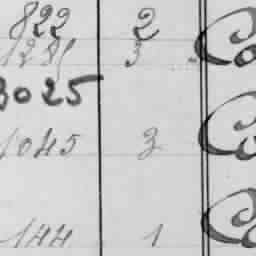 822 2 Co
1281 3 Co
3025
1045 3 Co
144 1 Co